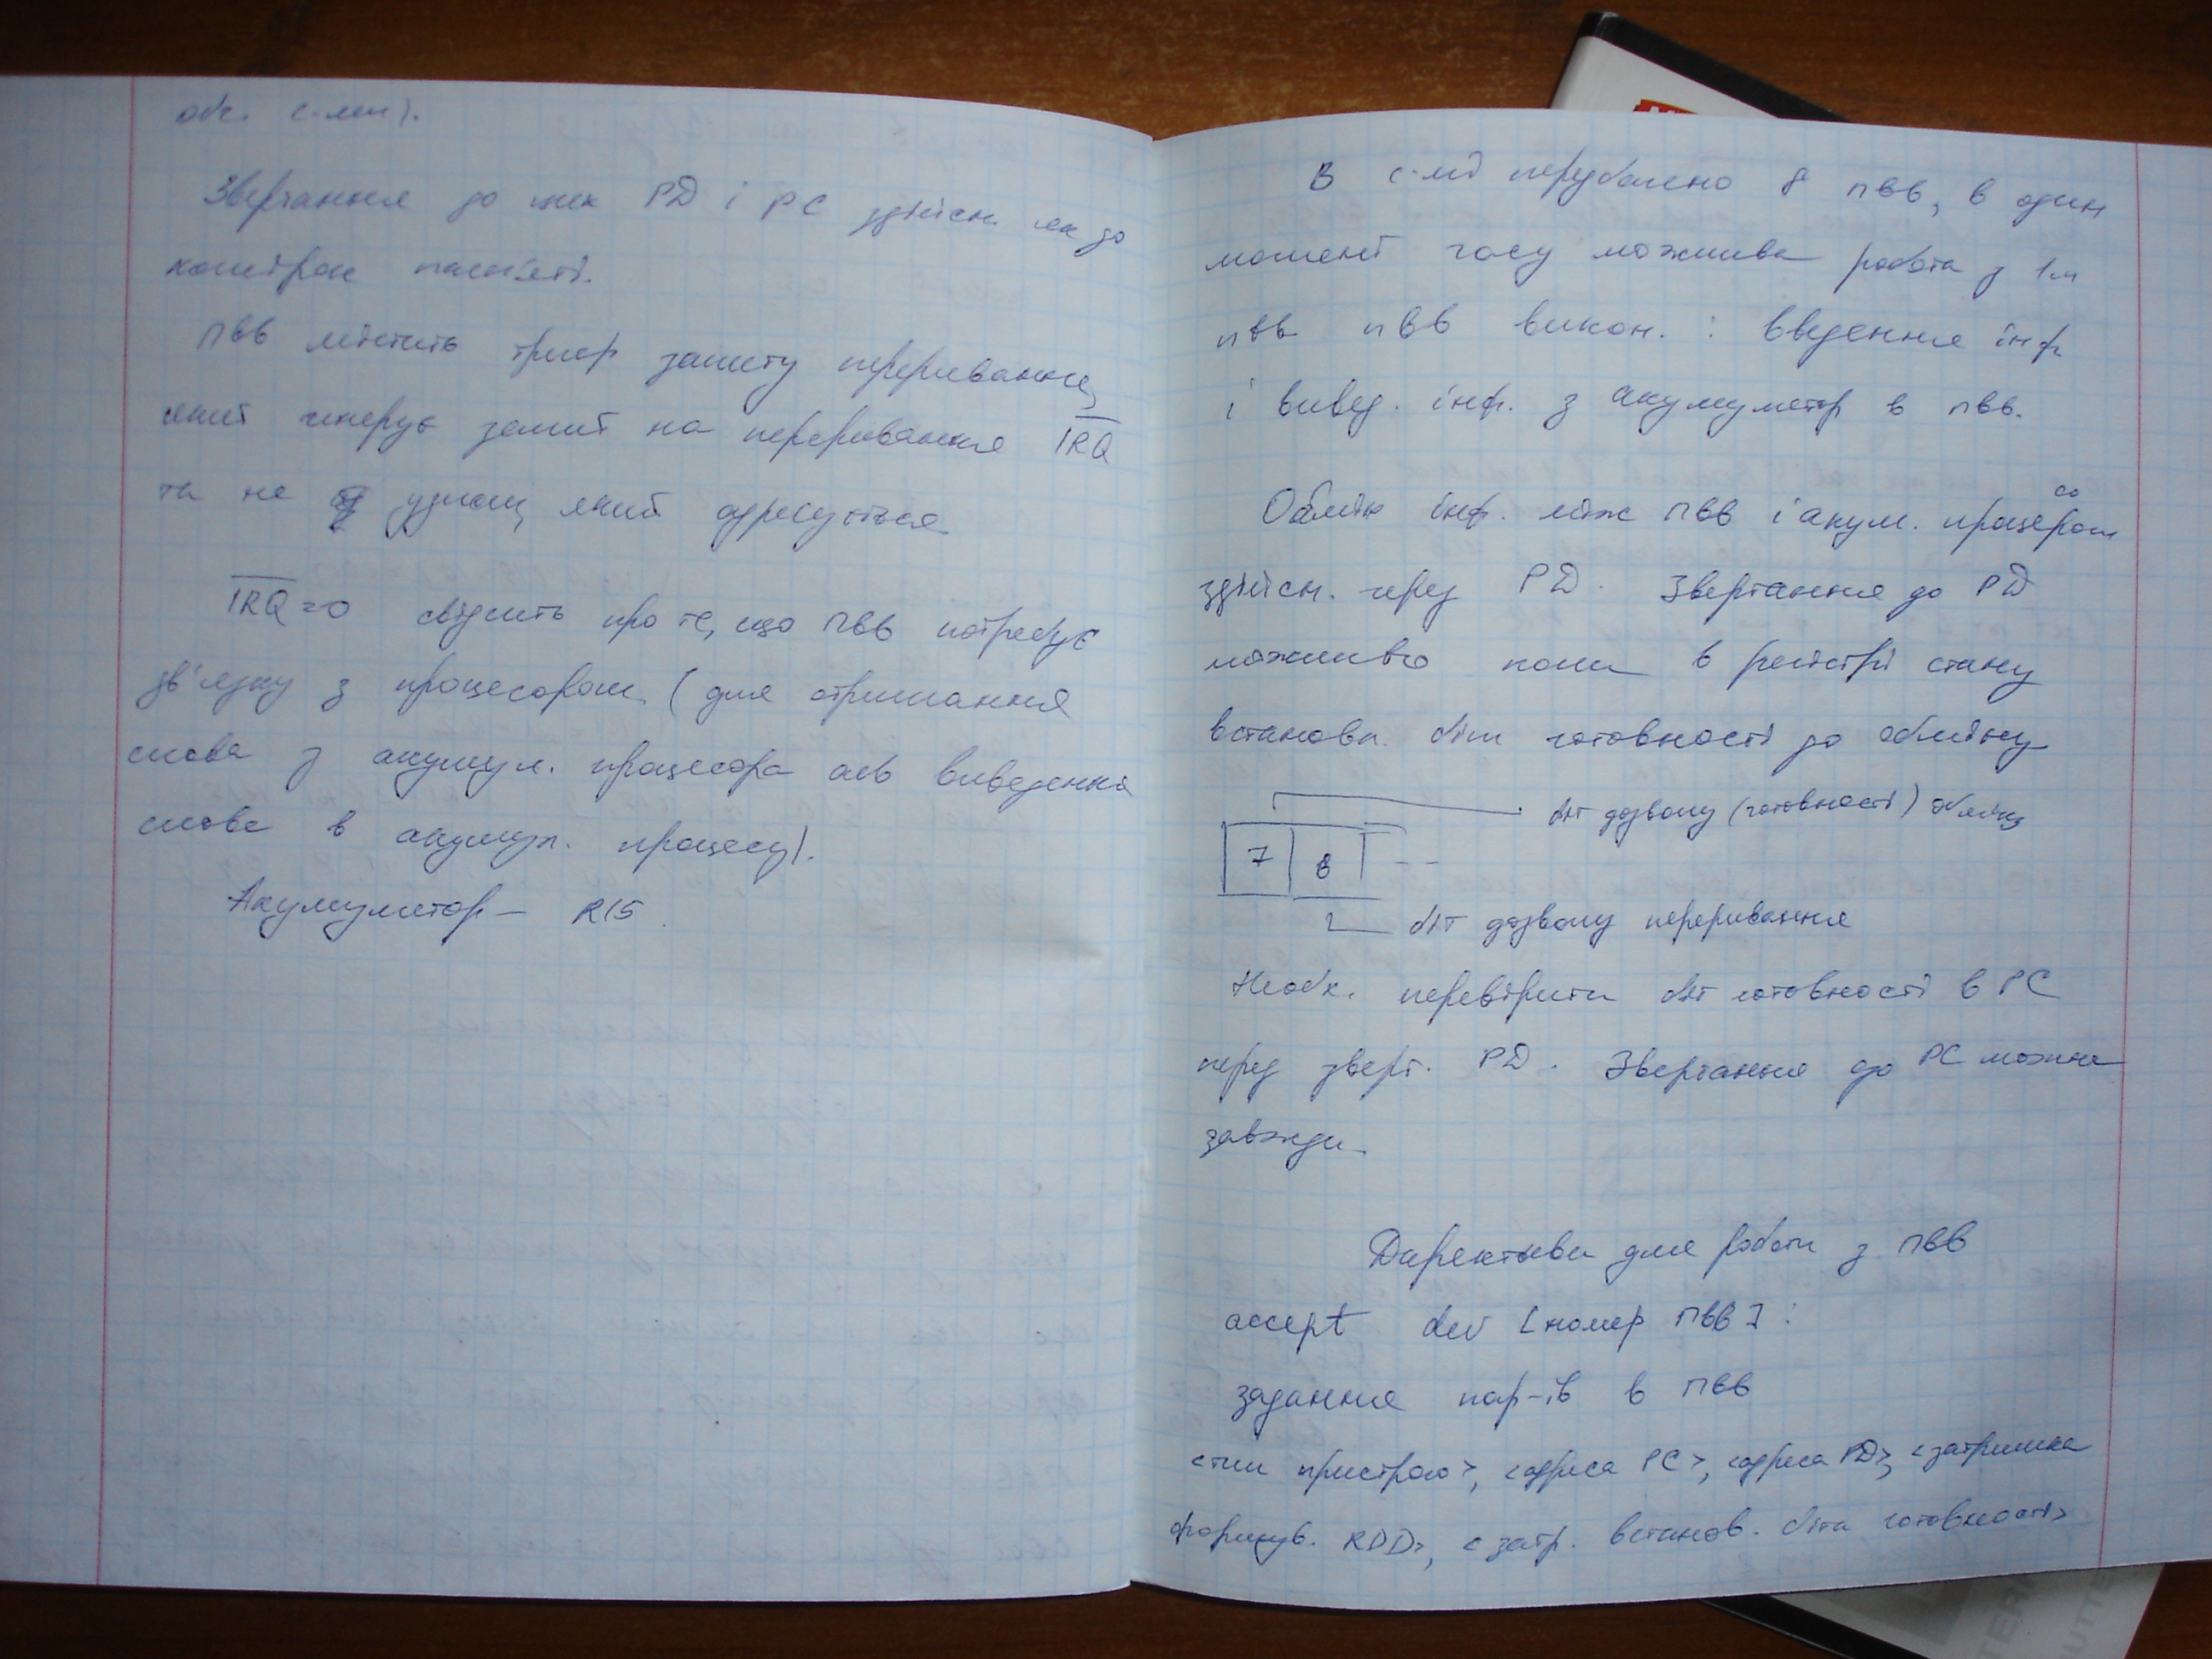 обч. с-ми).
Звертання до цих РД і РС здійсн. як до
комірок пам'яті.
ПВВ містить тригер запиту переривання,
який генерує запит на переривання IRQ
та не яку адресується
IRQ=0 свідчить про те, що ПВВ потребує
зв'язку з процесором (для отримання
слова з акумул. процесора або виведення
слова в акумул. процесу).
Акумулятор – R15.
В с-мі передбачено 8 ПВВ, в один
момент часу можлива робота з 1м
ПВВ ПВВ викон.: введення інф.
і вивед. інф. з акумулятор в ПВВ.
Обмін інф. між ПВВ і акум. процесором
здійсн. через РД. Звертання до РД
можливо коли в регістрі стану
встановл. біт готовності до обміну
біт дозволу (готовності) обміну
7 6 --
біт дозволу переривання
Необх. перевірити біт готовності в РС
перед зверт. РД. Звертання до РС можна
завжди.
Директиви для роботи з ПВВ
accept dev [номер ПВВ]:
задання пар-ів в ПВВ
<тип пристрою>, <адреса РС>, <адреса РД>, <затримка
формув. RDD>, <затр. встанов. біта готовності>
TER
UTTE